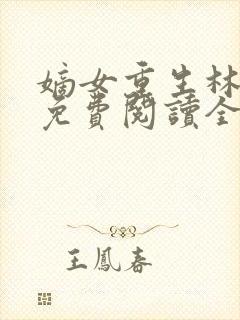 嫡女重生林
免費閱讀全
王鳳春